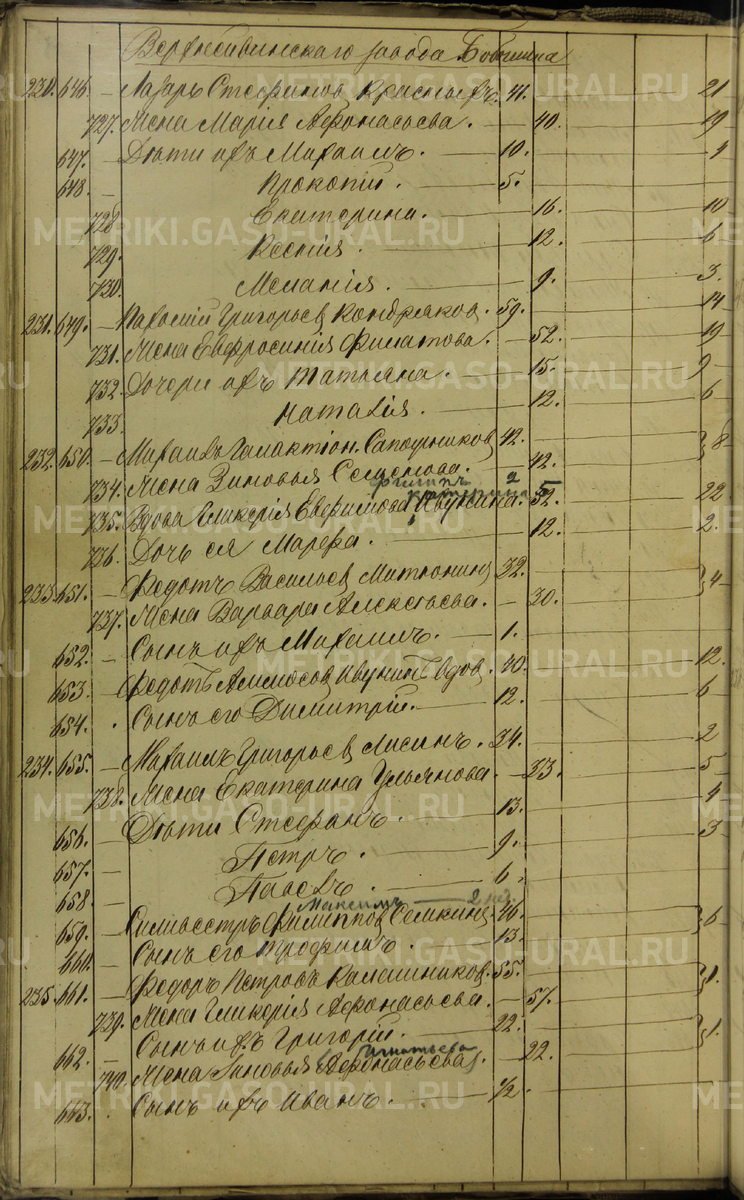 Верхнесивинскаго завода
230. 646. Лазарь Стефанов Красных. 41. 21
727. Жена Мария Афонасьева. 40. 19
647. Дети их Михаилъ. 10. 4
648. Прокопий. 5.
728. Екатерина. 16. 10
729. Ксения. 12. 6
730. Мелания. 9. 3.
231. 649. Пахомий Григорьев Кондряков. 59. 14
731. Жена Евфросиния Филатова. 52. 19
732. Дочери ихъ Татьяна. 15. 9
733. Наталия. 12. 6
232. 650. Михаилъ Галактион. Сапожников 42. 8
734. Жена Зиновья Семенова. 42.
Филипъ 2
735. Вдова Гликерия Евфимова Ивукина. 52. 22
736. Дочь ея Марфа. 12. 2.
233. 651. Федотъ Васильев Митюнин 32. 4
737. Жена Варвара Алексеева. 30.
652. Сынъ ихъ Михаилъ. 1.
653. Федотъ Ивукинъ вдов. 40. 12.
654. Сынъ его Димитрий. 12. 6
234. 655. Михаилъ Григорьев Лисинъ. 34. 2
738. Жена Екатерина Ульянова. 33. 5
656. Дети Стефанъ. 13. 4
657. Петръ. 9. 3
658 Павелъ. 6
Максимъ 2 нед
659. Сильвестръ Филиппов Семкин 46. 6
660. Сынъ его Трофимъ. 13.
235. 661. Федоръ Петровъ Калашников. 55. 1.
739. Жена Гликерия Афонасьева. 57.
662. Сынъ ихъ Григорий. 22. 1.
Игнатьева
740. Жена Зиновья (Афонасьева). 22.
663. Сынъ ихъ Иванъ. 1/2.
METRIKI.GASO-URAL.RU